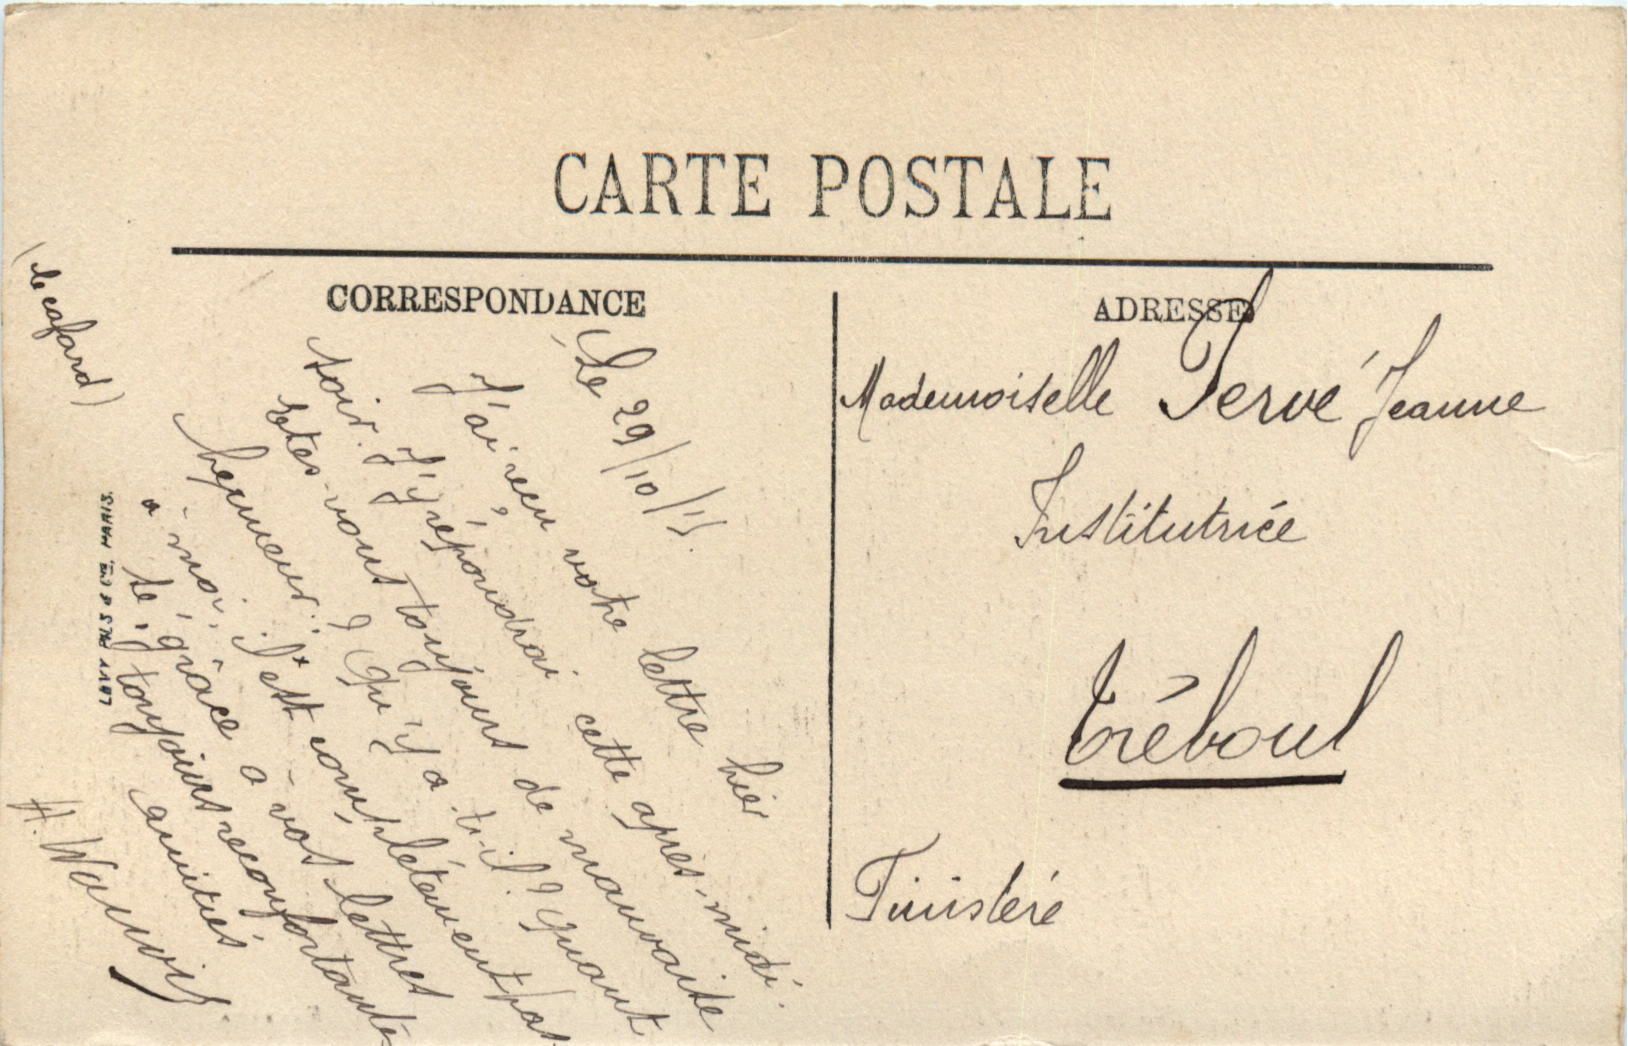 CARTE POSTALE
CORRESPONDANCE
Le 29/10/15.
J'ai reçu votre lettre hier
soir. J'y répondrai cette après-midi.
Etes-vous toujours de mauvaise
humeur ? Qu'y a-t-il ? Quant
à moi, il* est complètement pas
sé, grâce à vos lettres
toujours reconfortantes
amitiés
(le cafard)
LEVY FILS & Cie PARIS
ADRESSE
Mademoiselle Jeanne
Institutrice
Tréboul
Finistère